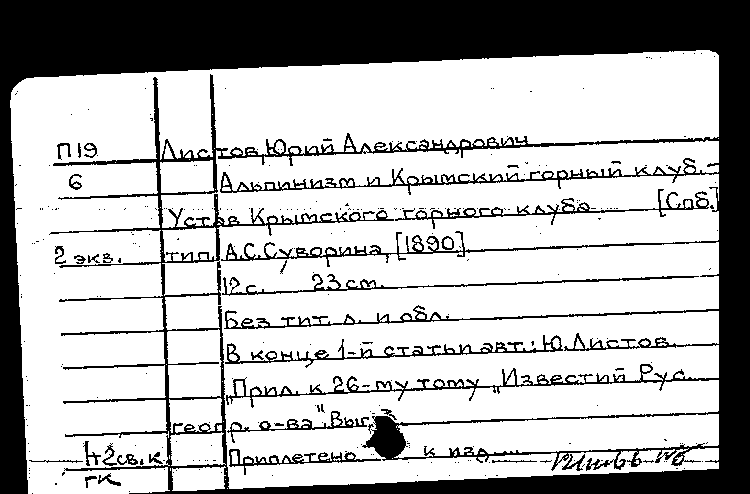 П19 Листов, Юрий Александрович
6 Альпинизм и Крымский горный клуб. –
Устав Крымского горного клуба [Спб.]
2 экз. тип. А.С.Суворина, [1890].
12 с. 23 см.
Без тит. л. и обл.
В конце 1-й статьи авт.: Ю.Листов.
„Прил. к 26-му тому „Известий Рус.
геогр. о-ва". Вып.
Н2св.к. Приплетено к изд.
ГК